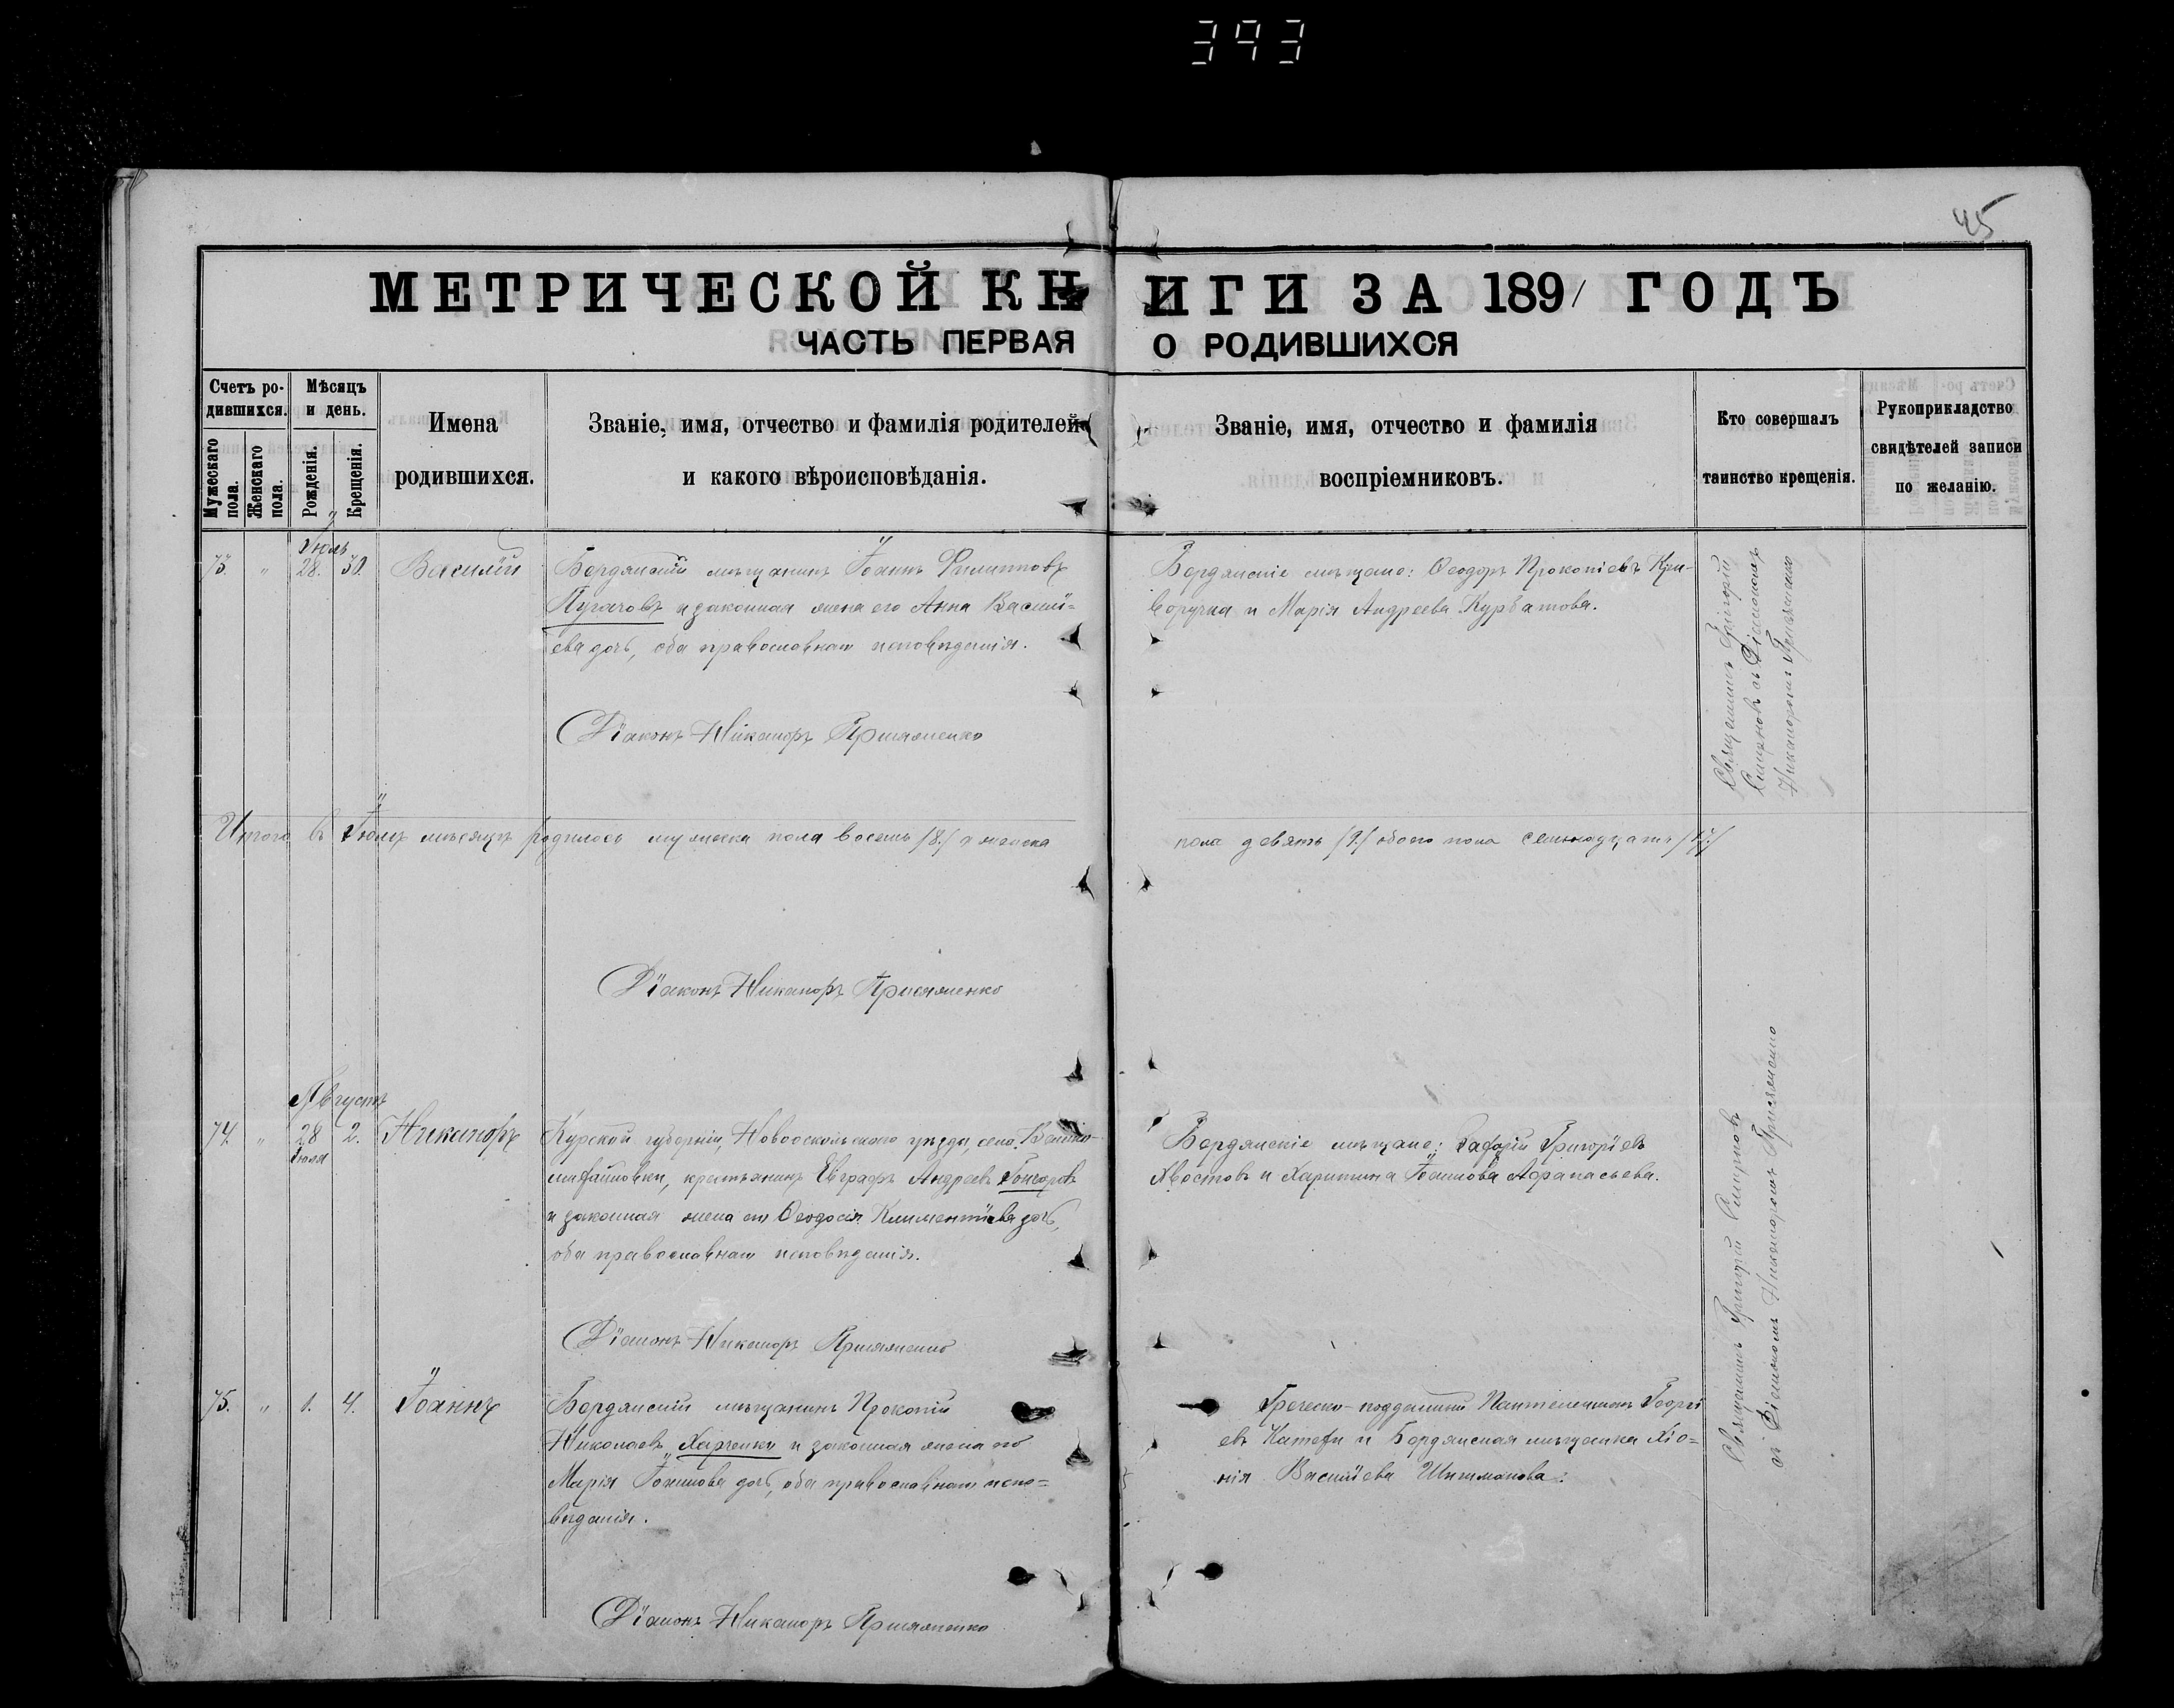 393
45
МЕТРИЧЕСКОЙ КНИГИ ЗА 1891 ГОДЪ
ЧАСТЬ ПЕРВАЯ О РОДИВШИХСЯ
Счетъ ро-
дившихся.
Мужескаго
пола.
Женскаго
пола.
Мѣсяцъ
и день.
Рожденія.
Крещенія.
Имена
родившихся.
Званіе, имя, отчество и фамилія родителей
и какого вѣроисповѣданія.
Званіе, имя, отчество и фамилія
воспріемниковъ.
Кто совершалъ
таинство крещенія.
Рукоприкладство
свидѣтелей записи
по желанію.
Іюль
73. " 28. 30. Василій
Бердянскій мѣщанинъ Іоаннъ Филипповъ
Пугачовъ и законная жена его Анна Василі-
ева дочь, оба православнаго исповѣданія.
Діаконъ Никаноръ Присяженко
Бердянскіе мѣщане: Ѳеодоръ Прокопіевъ Кри-
воручка и Марія Андреева Курбатова.
Священникъ Григорій
Смирновъ съ Діакономъ
Никаноромъ Присяженко
Итого въ Іюлѣ мѣсяцѣ родилось мужеска пола восемь /8./ и женска
пола девять /9./ обоего пола семнадцать /17./
Діаконъ Никаноръ Присяженко
Августъ
74. " 28 2. Никаноръ
Іюля
Курской губерніи, Новооскольскаго уѣзда, села
крестьянинъ Евграфъ Андреевъ Гончаровъ
и законная жена его Ѳеодосія Климентіева дочь,
оба православнаго исповѣданія.
Діаконъ Никаноръ Присяженко
Бердянскіе мѣщане: Григоріевъ
Хвостовъ и Харитина Іоаннова Аѳанасьева.
Священникъ Григорій Смирновъ
съ Діакономъ Никаноромъ Присяженко
75. " 1. 4. Іоаннъ
Бердянскій мѣщанинъ Прокопій
Николаевъ Харченко и законная жена его
Марія Іоаннова дочь, оба православнаго испо-
вѣданія.
Діаконъ Никаноръ Присяженко
Греческо-подданный Пантелеимонъ Георгі
евъ и Бердянская мѣщанка Хіо-
нія Василіева Шишманова.